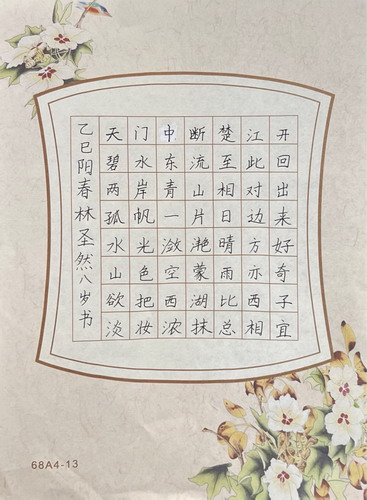 天门中断楚江开
碧水东流至此回
两岸青山相对出
孤帆一片日边来
水光潋滟晴方好
山色空蒙雨亦奇
欲把西湖比西子
淡妆浓抹总相宜
乙巳阳春林圣然八岁书
68A4-13